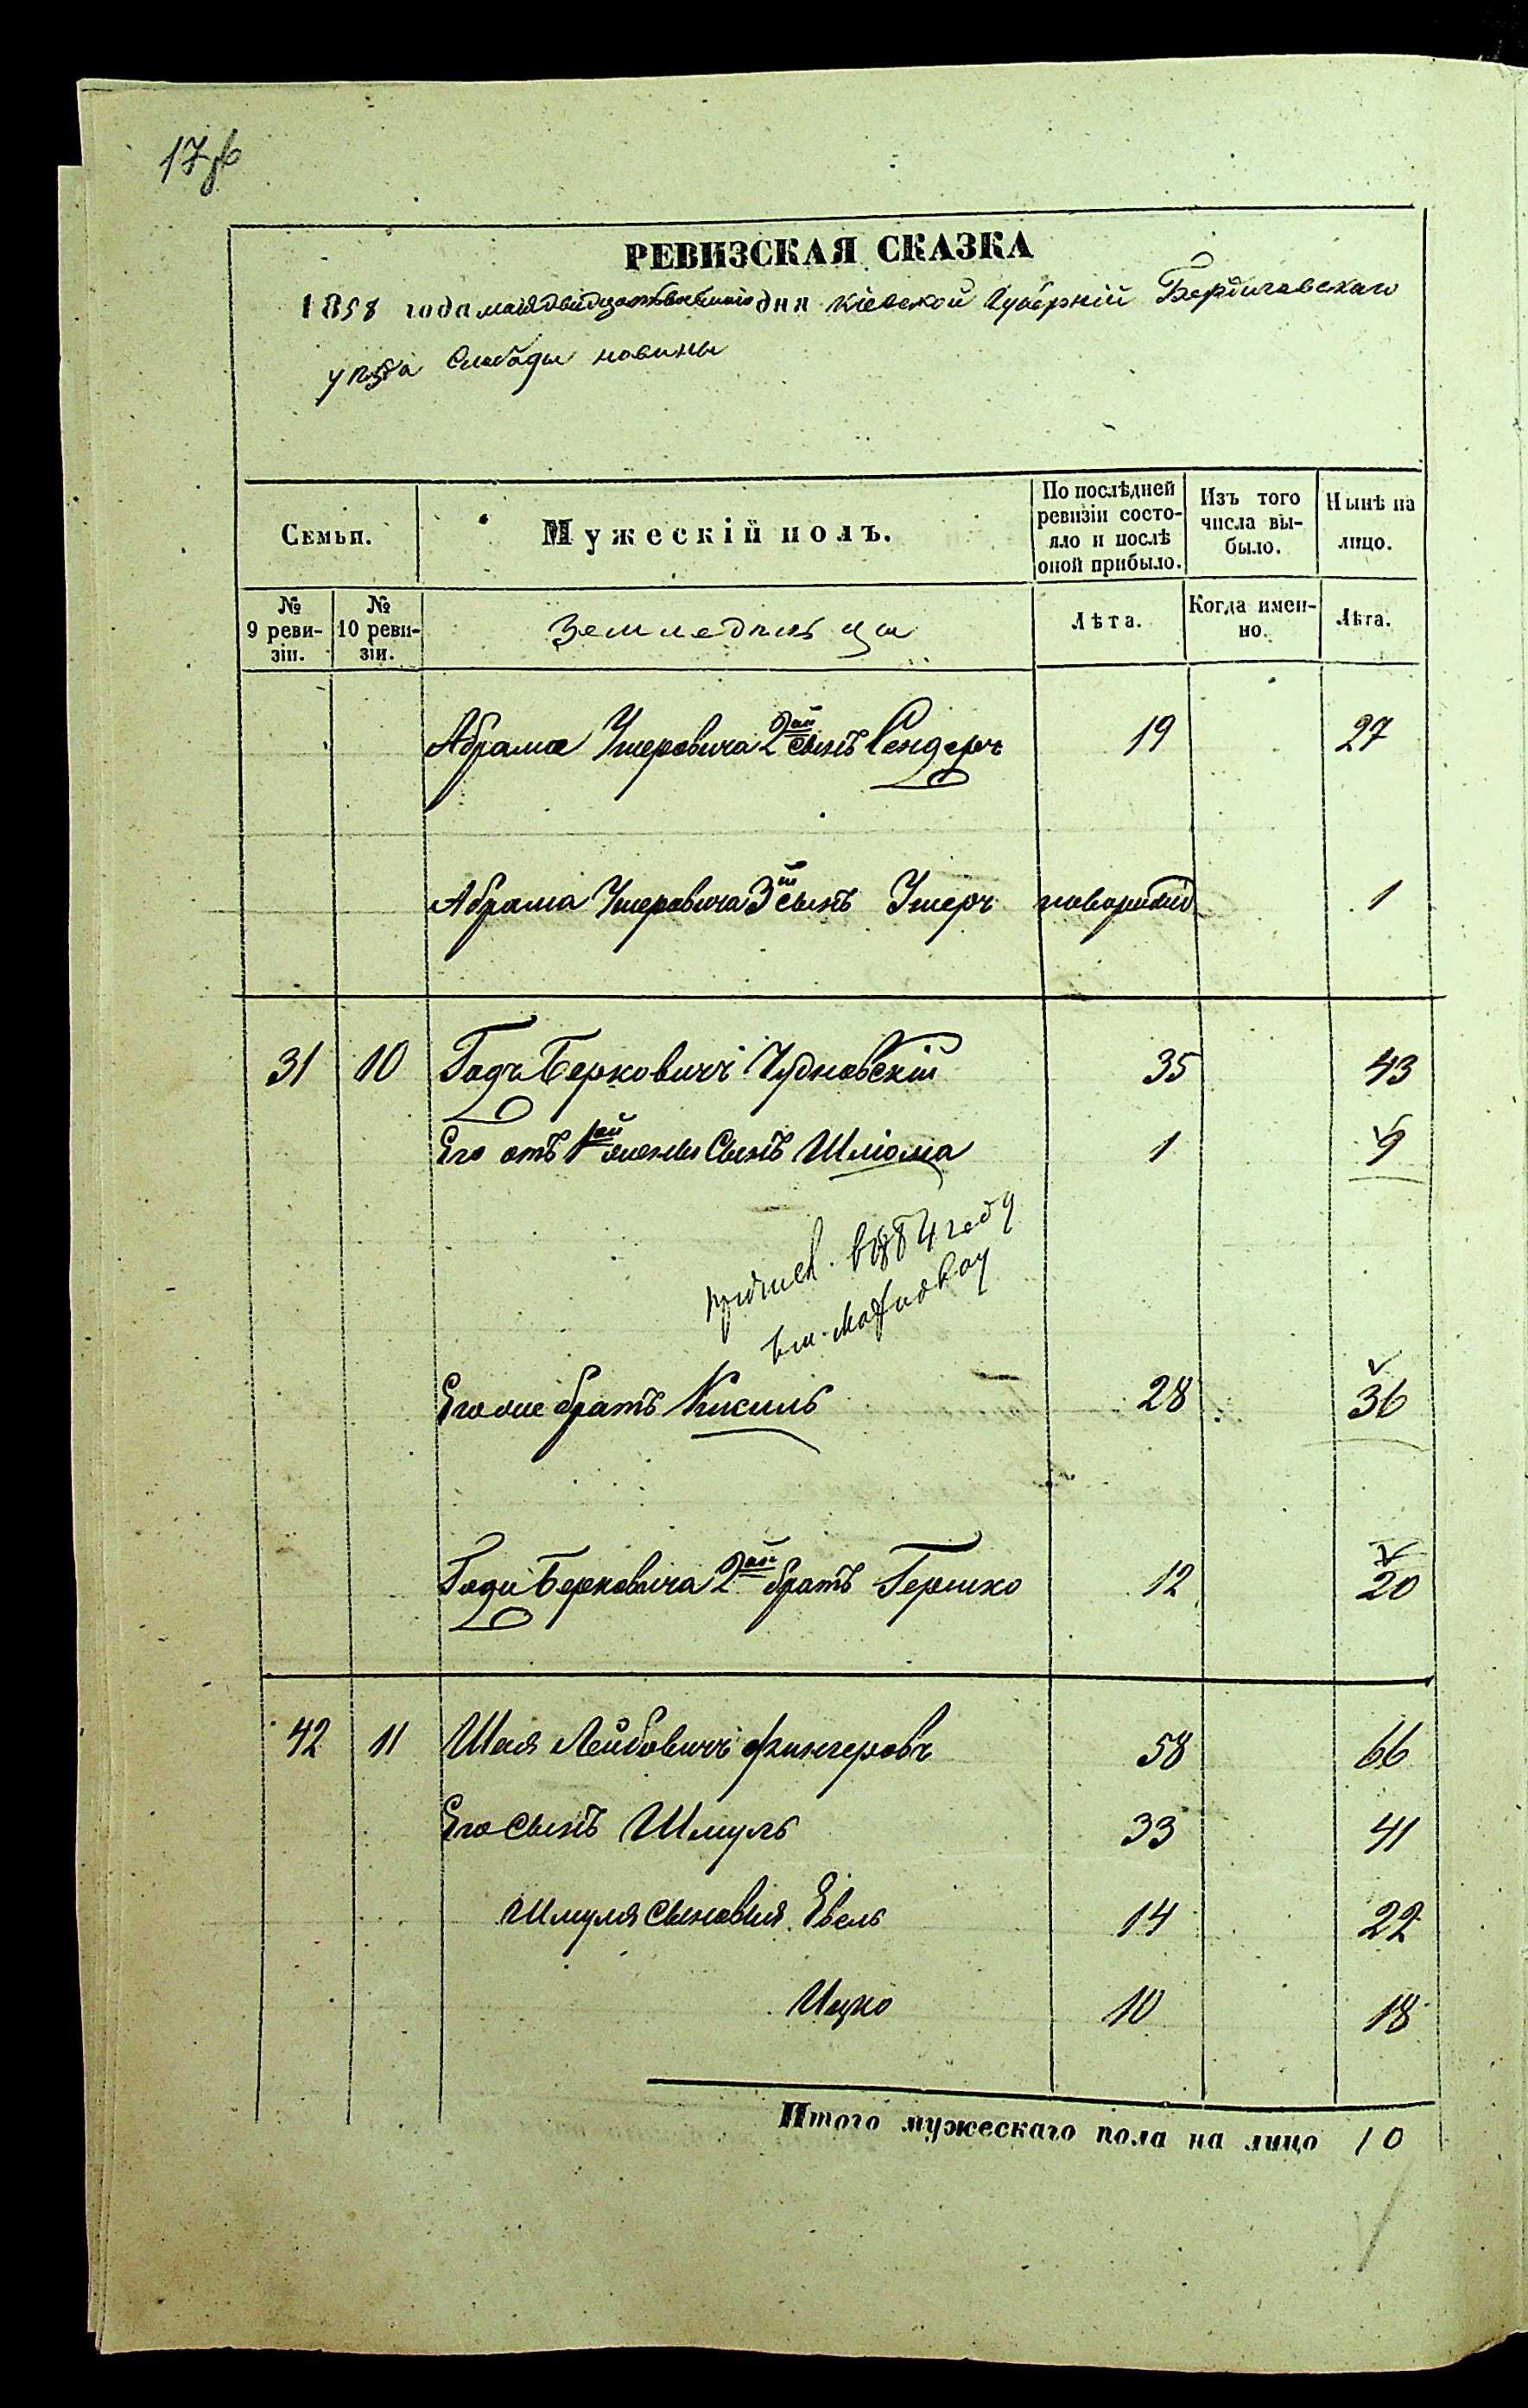 РЕВИЗСКАЯ СКАЗКА
1858 года мая двадцать дня Кіевской Губерніи Бердичевскаго
уѣзда Слободы новины
Семьи.
Мужескій полъ.
По послѣдней ревизіи состояло и послѣ оной прибыло.
Изъ того числа выбыло.
Нынѣ на лицо.
№ 9 ревизіи.
№ 10 ревизіи.
Земледѣльцы
Лѣта.
Когда именно.
Лѣта.
Абрама Умеровича 2ой сынъ Сендеръ 19 27
Абрама Умеровича 3ій сынъ Умеръ новорожд 1
31 10 Годъ Берковичъ Чудновскій 35 43
Его отъ 1ой жены сынъ Шлiома 1 9
в 1884 году
Его же братъ Кисиль 28 36
Годи Берковича 2ой братъ Гершко 12 20
42 11 Шая Лейбовичъ Фингеровъ 58 66
Его сынъ Шмуль 33 41
Шмуля сыновья Евель 14 22
Ицко 10 18
Итого мужескаго пола на лицо 10